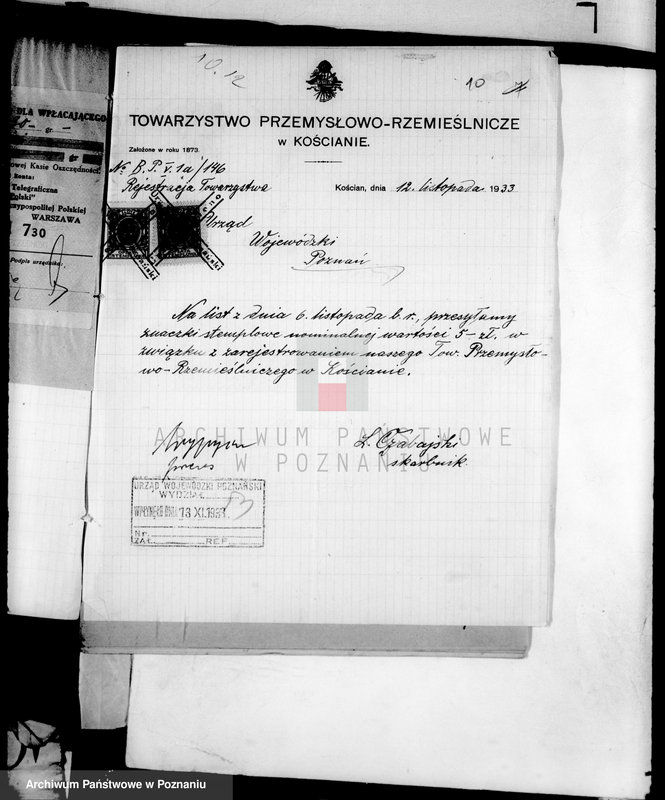 10.12
10
TOWARZYSTWO PRZEMYSŁOWO-RZEMIEŚLNICZE
W KOŚCIANIE.
Założone w roku 1873.
№ B.P. V. 1a/146
Rejestracja Towarzystwa
Kościan, dnia 12. listopada 1933
Urząd
Wojewódzki
Poznań
Na list z dnia 6. listopada b.r., przesyłamy
znaczki stemplowe nominalnej wartości 5-zł. w
związku z zarejestrowaniem naszego Tow. Przemysło-
wo-Rzemieślniczego w Kościanie.
prezes
skarbnik
URZĄD WOJEWÓDZKI POZNAŃSKI
WYDZIAŁ
WPŁYNĘŁO DNIA 13 XI. 1933
Nr.
ZAŁ. REF.
DLA WPŁACAJĄCEGO
gr
owej Kasie Oszczędności
Konta:
Telegraficzna
olski"
zypospolitej Polskiej
WARSZAWA
730
Podpis urzędnika
ARCHIWUM PAŃSTWOWE
W POZNANIU
Archiwum Państwowe w Poznaniu